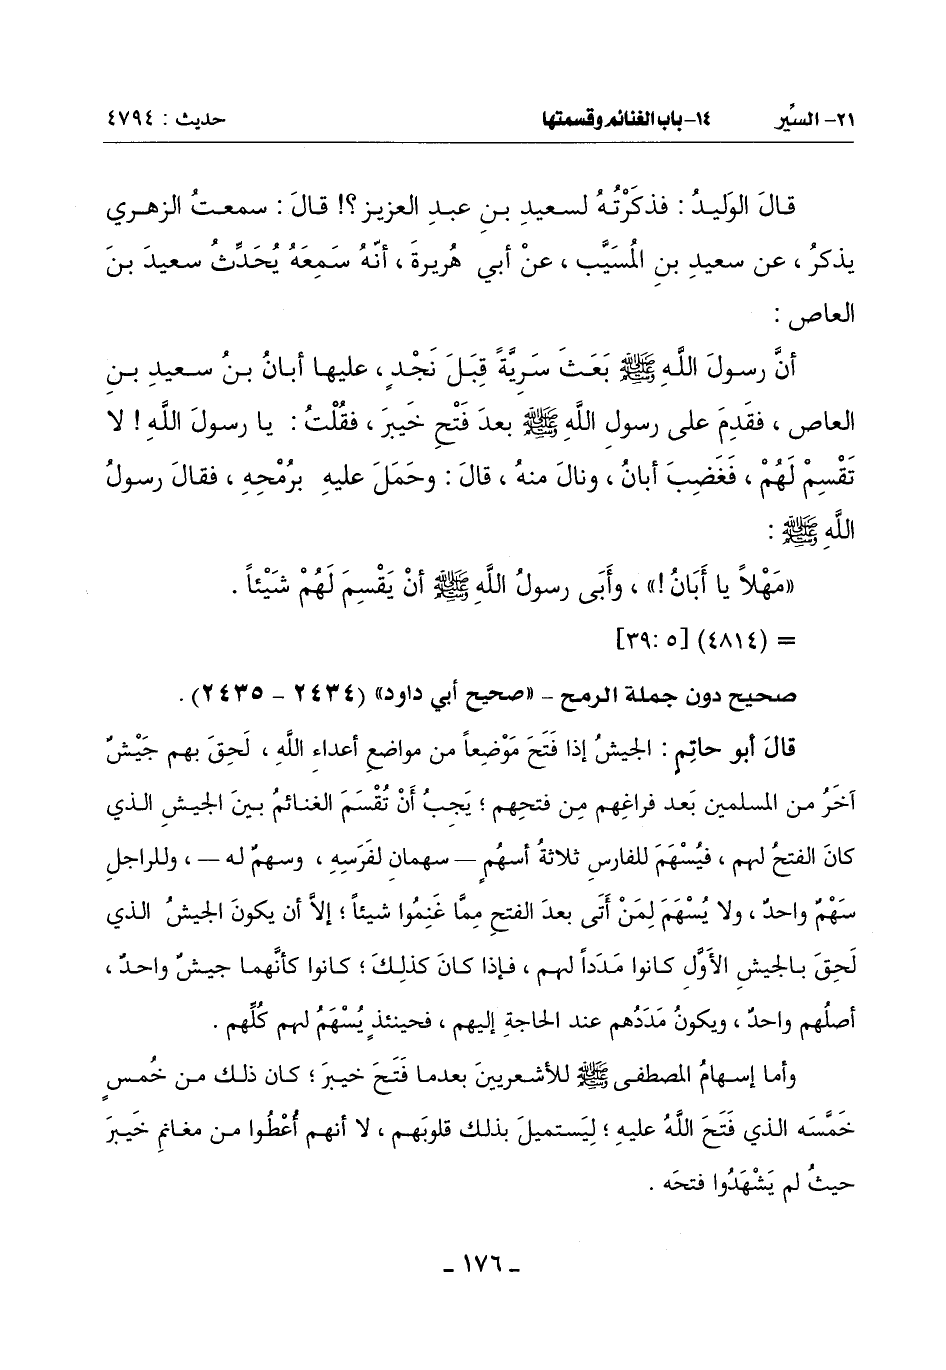 ٢١- السِّير ١٤- باب الغنائم وقسمتها حديث : ٤٧٩٤
قالَ الوَليدُ : فذكَرْتُهُ لسعيدِ بـنِ عبدِ العزيز؟! قالَ : سمعـتُ الزهـري
يذكرُ ، عن سعيدِ بنِ المُسَيَّب ، عنْ أبي هُريرةَ ، أنَّهُ سَمِعَهُ يُحَدِّثُ سعيدَ بـنَ
العاص :
أنَّ رسولَ اللَّهِ ﷺ بَعَثَ سَرِيَّةً قِبَلَ نَجْدٍ ، عليهـا أبـانُ بـنُ سـعيدِ بـنِ
العاص ، فقَدِمَ على رسولِ اللَّهِ ﷺ بعدَ فَتْحِ خَيبرَ ، فقُلْتُ : يـا رسـولَ اللَّهِ ! لا
تَقْسِمْ لَهُمْ ، فَغَضِبَ أبانُ ، ونالَ منهُ ، قالَ : وحَمَلَ عليهِ برُمْحِهِ ، فقالَ رسولُ
اللَّهِ ﷺ :
«مَهْلاً يا أَبَانُ !» ، وأَبَى رسولُ اللَّهِ ﷺ أنْ يَقْسِمَ لَهُمْ شَيْئاً .
= (٤٨١٤) [٥ :٣٩]
صحيح دون جملة الرمح – «صحيح أبي داود» (٢٤٣٤ – ٢٤٣٥) .
قالَ أبو حاتِمٍ : الجيشُ إذا فَتَحَ مَوْضِعاً من مواضعِ أعداء اللَّهِ ، لَحِقَ بهم جَيْشٌ
آخَرُ مـن المسلمين بَعـد فراغِهم مِـن فتحِهم ؛ يَجِبُ أنْ تُقْسَمَ الغنـائمُ بـينَ الجيـشِ الـذي
كانَ الفتحُ لهم ، فيُسْهَمَ للفارسِ ثلاثةُ أسهُمٍ – سهمان لفَرَسِهِ ، وسهمٌ له – ، وللراجل
سَهْمٌ واحدٌ ، ولا يُسْهَمَ لِمَنْ أَتى بعدَ الفتحِ مِمَّا غَنِمُوا شيئاً ؛ إلاَّ أن يكونَ الجيشُ الذي
لَحِقَ بـالجيشِ الأوَّلِ كـانوا مَـدَداً لهـم ، فـإذا كـانَ كذلِـكَ ؛ كـانوا كأنَّهمـا جيـشٌ واحـدٌ ،
أصلُهم واحدٌ ، ويكونُ مَدَدُهم عند الحاجةِ إليهم ، فحينئذٍ يُسْهَمُ لهم كُلِّهم .
وأما إسـهامُ المصطفـى ﷺ للأشـعريينَ بعدمـا فَتَـحَ خيـبرَ ؛ كـان ذلـك مـن خُمـسٍ
خَمَّسَه الذي فَتَحَ اللَّهُ عليهِ ؛ لِيَستميلَ بذلك قلوبَهم ، لا أنهم أُعْطُوا من مغانمِ خَيبرَ
حيثُ لم يَشْهَدُوا فتحَه .
– ١٧٦ –